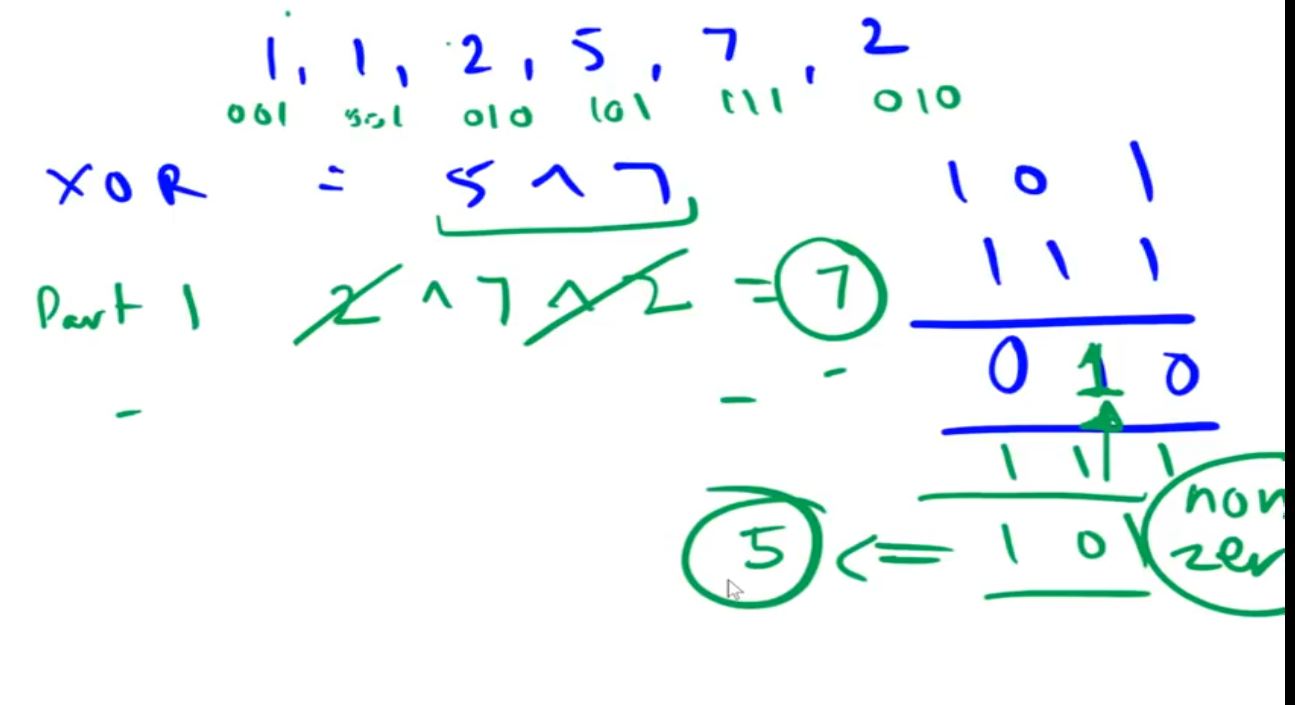 1, 1, 2, 5, 7, 2
001 001 010 101 111 010
XOR = 5 ^ 7
101
111
Part 1 2 ^ 7 ^ 2 = 7
010
111
5 <= 101
non
zer